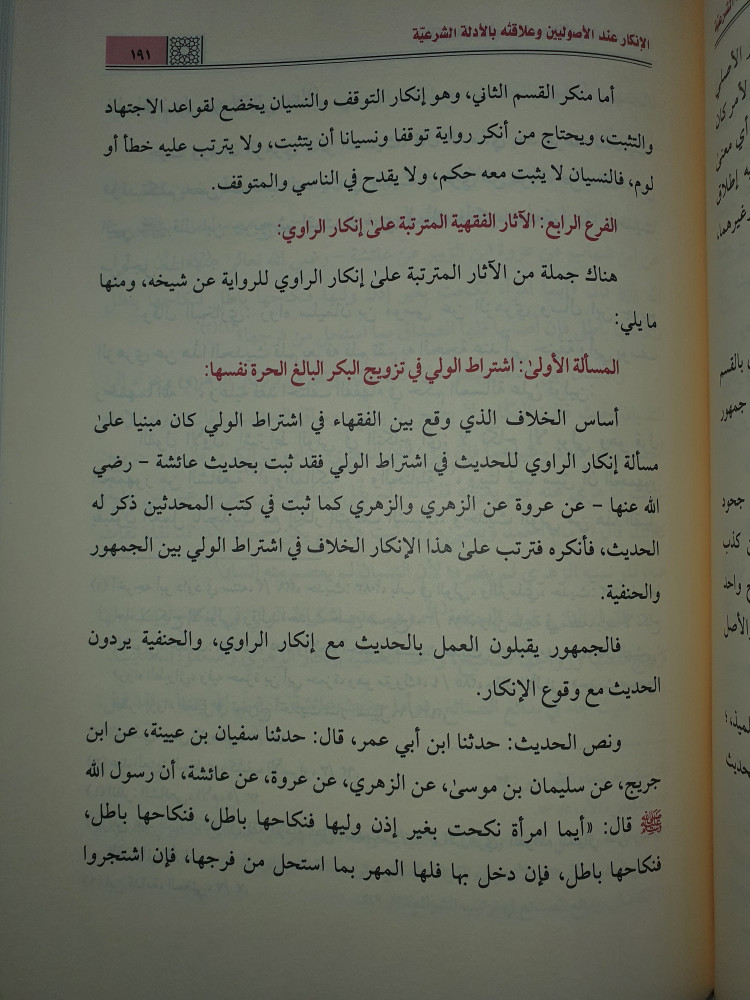 الإنكار عند الأصوليين وعلاقته بالأدلة الشرعيّة
١٩١
أما منكر القسم الثاني، وهو إنكار التوقف والنسيان يخضع لقواعد الاجتهاد
والتثبت، ويحتاج من أنكر رواية توقفا ونسيانا أن يتثبت، ولا يترتب عليه خطأ أو
لوم، فالنسيان لا يثبت معه حكم، ولا يقدح في الناسي والمتوقف.
الفرع الرابع: الآثار الفقهية المترتبة علىٰ إنكار الراوي:
هناك جملة من الآثار المترتبة علىٰ إنكار الراوي للرواية عن شيخه، ومنها
ما يلي:
المسألة الأولىٰ: اشتراط الولي في تزويج البكر البالغ الحرة نفسها:
أساس الخلاف الذي وقع بين الفقهاء في اشتراط الولي كان مبنيا علىٰ
مسألة إنكار الراوي للحديث في اشتراط الولي فقد ثبت بحديث عائشة – رضي
الله عنها – عن عروة عن الزهري والزهري كما ثبت في كتب المحدثين ذكر له
الحديث، فأنكره فترتب علىٰ هذا الإنكار الخلاف في اشتراط الولي بين الجمهور
والحنفية.
فالجمهور يقبلون العمل بالحديث مع إنكار الراوي، والحنفية يردون
الحديث مع وقوع الإنكار.
ونص الحديث: حدثنا ابن أبي عمر، قال: حدثنا سفيان بن عيينة، عن ابن
جريج، عن سليمان بن موسىٰ، عن الزهري، عن عروة، عن عائشة، أن رسول الله
ﷺ قال: «أيما امرأة نكحت بغير إذن وليها فنكاحها باطل، فنكاحها باطل،
فنكاحها باطل، فإن دخل بها فلها المهر بما استحل من فرجها، فإن اشتجروا